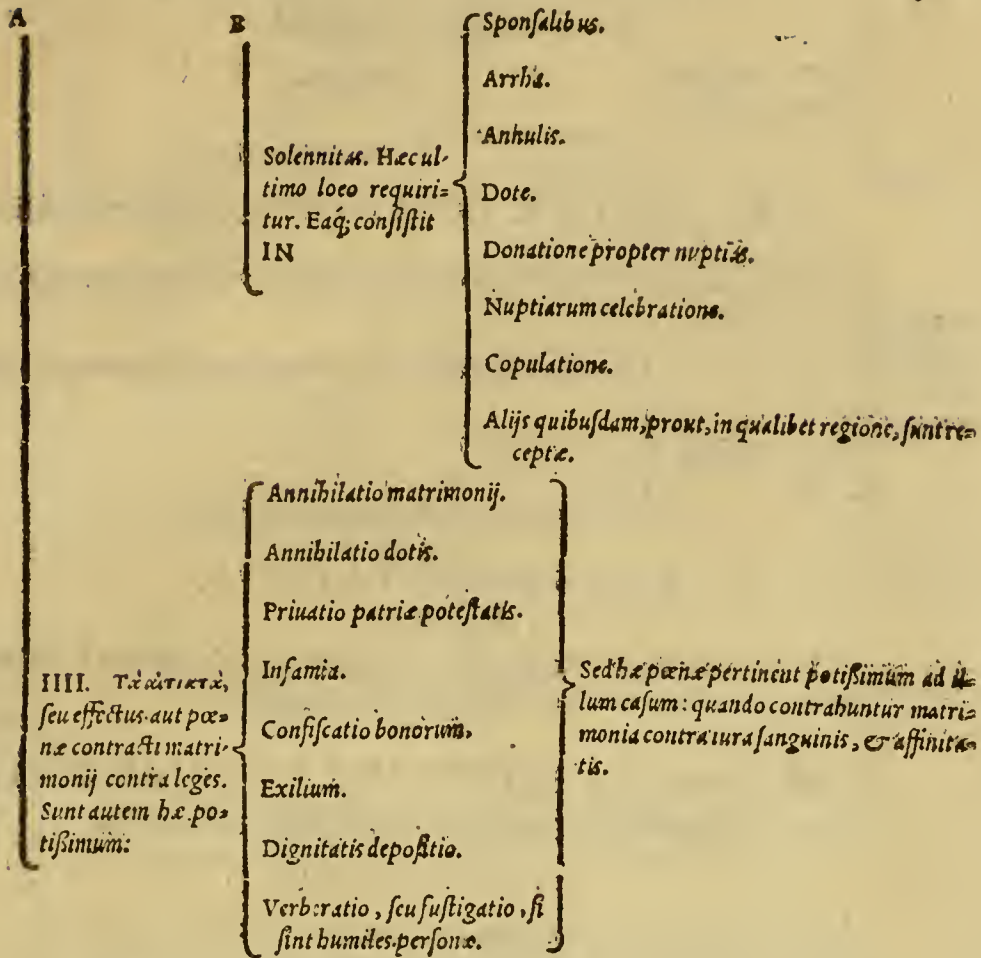 A
B
Solennitas. Hæc ul-
timo loco requiri=
tur. Eaq́; conſiſtit
IN
Sponſalibus.
Arrha.
Anhulis.
Dote.
Donatione propter nuptias.
Nuptiarum celebratione.
Copulatione.
Alijs quibuſdam, prout, in qualibet regione, ſunt re=
ceptæ.
IIII. Τὰ αἰτιατὰ,
ſeu effectus aut pœ=
næ contracti matri-
monij contra leges.
Sunt autem hæ po=
tißimum:
Annihilatio matrimonij.
Annihilatio dotis.
Priuatio patriæ poteſtatis.
Infamia.
Confiſcatio bonorum.
Exilium.
Dignitatis depoſitio.
Verberatio, ſeu fuſtigatio, ſi
ſint humiles perſonæ.
Sed hæ pœnæ pertinent potißimum ad il=
lum caſum: quando contrahuntur matri=
monia contra iura ſanguinis, & affinita=
tis.